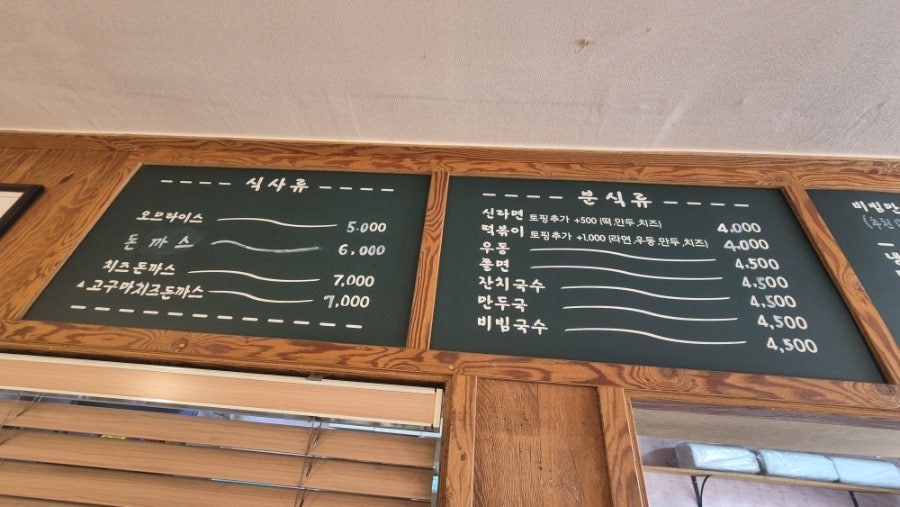 식사류
오므라이스 5.000
돈까스 6,000
치즈돈까스 7,000
▲고구마치즈돈까스 7,000
분식류
신라면 토핑추가 +500 (떡,만두,치즈) 4.000
떡볶이 토핑추가 +1,000 (라면,우동,만두,치즈) 4.000
우동 4,500
쫄면 4,500
잔치국수 4,500
만두국 4,500
비빔국수 4,500
비빔만